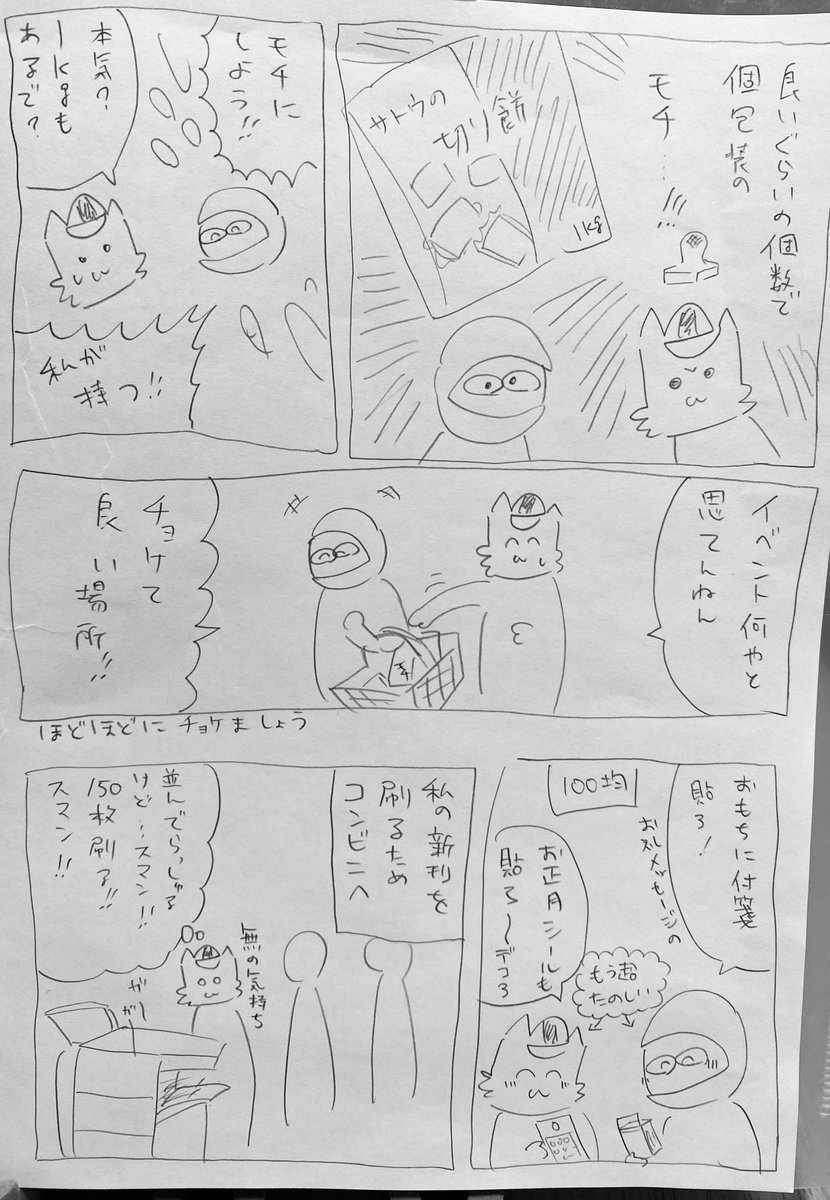 良いぐらいの個数で
個包装の
モチ…!!!
サトウの
切り餅
1kg
モチに
しよう!!
本気?
1kgも
あるで?
私が
持つ!!
イベント何やと
思てんねん
モチ
チョケて
良い場所!!
ほどほどに チョケま しょう
おもちに付箋
貼ろ!
お礼メッセージの
100均
お正月シールも
貼ろ〜デコろ
もう超
たのしい
私の新刊を
刷るため
コンビニへ
無の気持ち
並んでらっしゃる
けど…スマン!!
150枚刷る!!
スマン!!
ガ
ガー